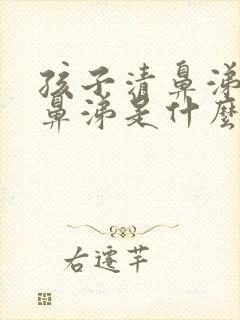 孩子清鼻涕
鼻涕是什麼
右遷芊